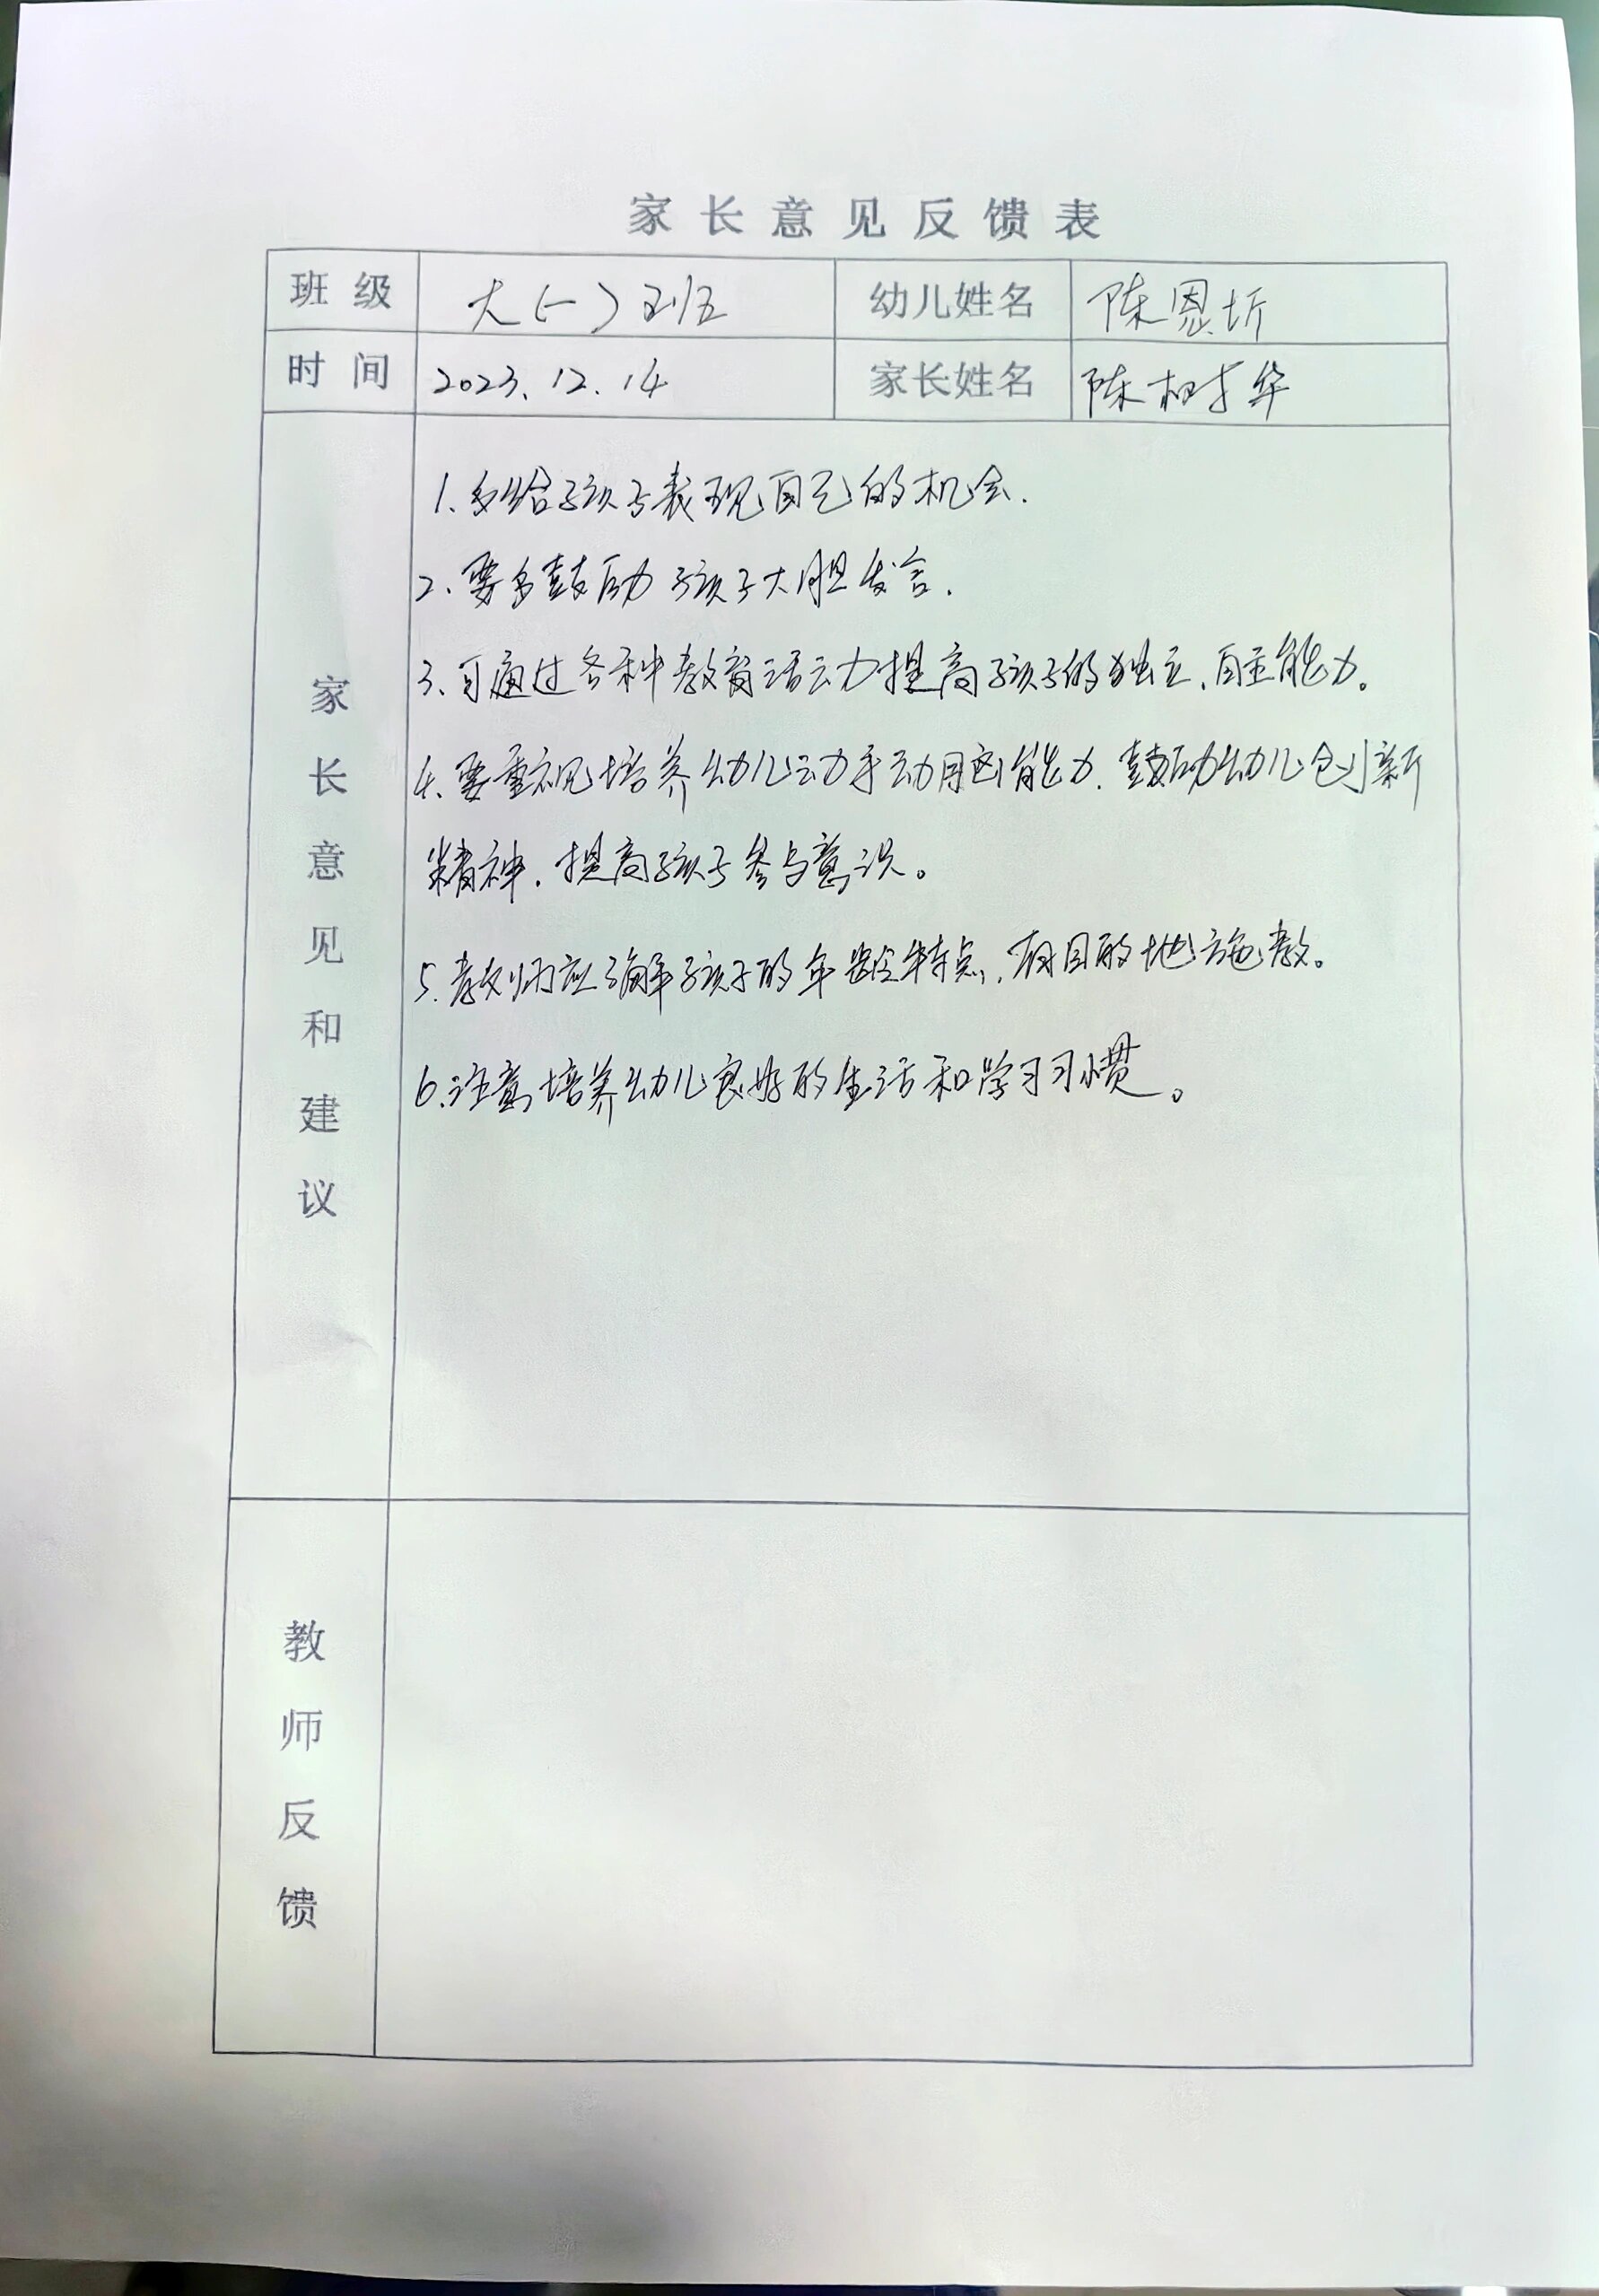 家长意见反馈表
班级 大(一)班 幼儿姓名 陈恩圻
时间 2023.12.14 家长姓名 陈树华
家长意见和建议
1、多给孩子表现自己的机会.
2、要多鼓励孩子大胆发言.
3、可通过各种教育活动提高孩子的独立、自主能力。
4、要重视培养幼儿动手动脑能力.鼓励幼儿创新
精神.提高孩子参与意识。
5.教师应了解孩子的年龄特点,有目的地施教。
6.注意培养幼儿良好的生活和学习习惯。
教师反馈